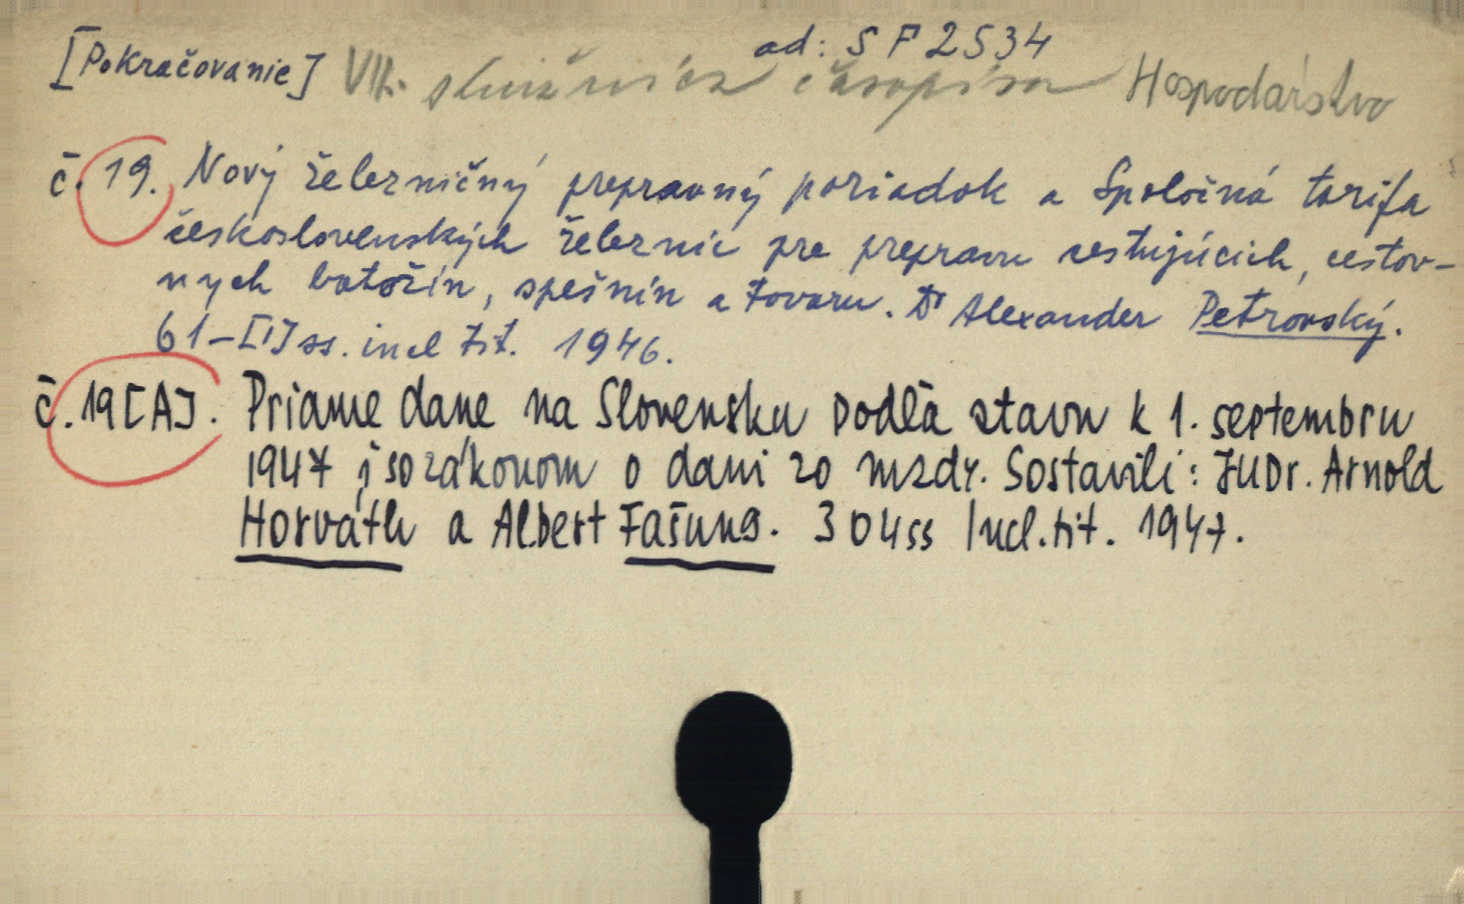 ad: SF 2534
[Pokračovanie] VII. knižnica časopisu Hospodárstvo
č. 19. Nový železničný prepravný poriadok a Spoločná tarifa
československých železníc pre prepravu cestujúcich, cestov-
ných batožín, spešnín a tovaru. Dr Alexander Petrovský.
61-[1] ss. incl tit. 1946.
č. 19[A]. Priame dane na Slovensku podľa stavu k 1. septembru
1947 i so zákonom o dani zo mzdy. Sostavili: JUDr. Arnold
Horváth a Albert Fašung. 304 ss Incl. tit. 1947.